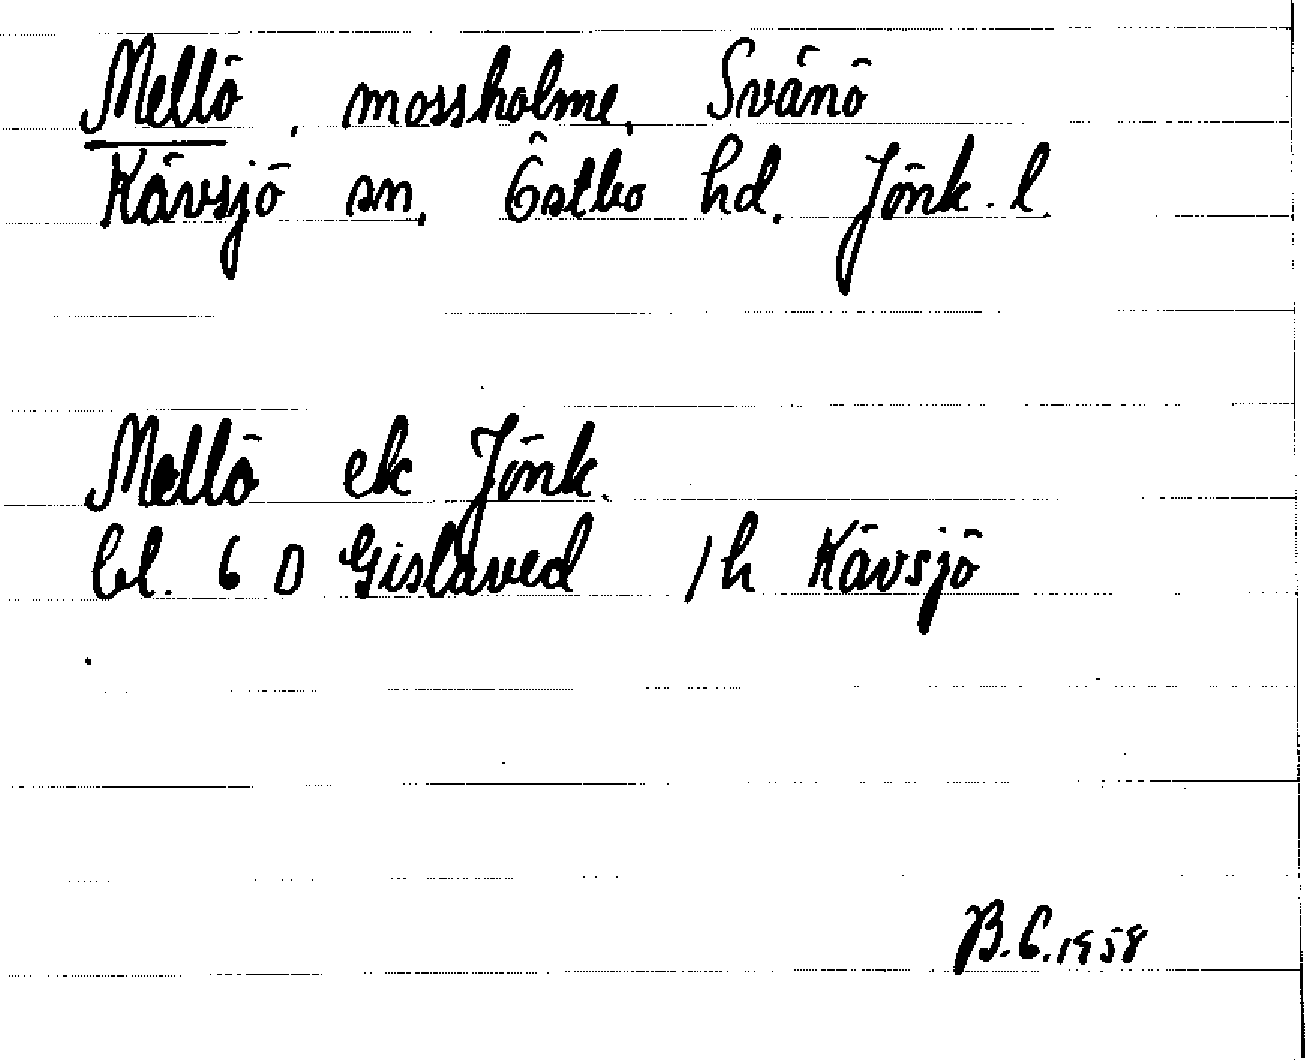 Mellö, mossholme, Svänö
Kävsjö sn, Östbo hd, Jönk. l.
Mellö ek Jönk.
bl. 6 D Gislaved 1h Kävsjö
B.E. 1958